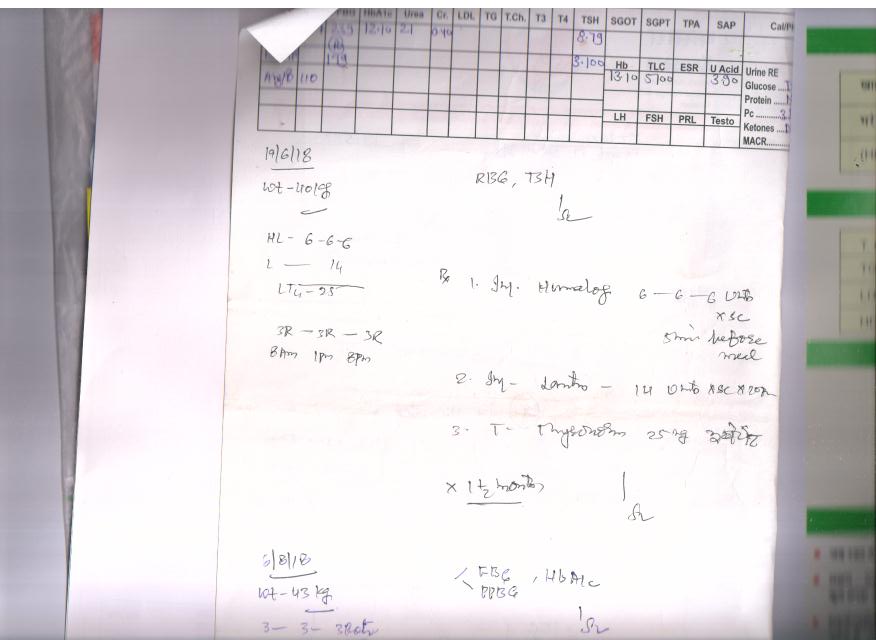 PBG HbA1c Urea Cr. LDL TG T.Ch. T3 T4 TSH SGOT SGPT TPA SAP
239 12.10 21 0.40 8.79
(A)
179 3.100 Hb TLC ESR U Acid Urine RE
13.10 5100 3.90 Glucose
110 Protein
Pc
LH FSH PRL Testo Ketones
MACR
19/6/18
wt-40kg RBG, TSH
HL - 6-6-6
L — 14
LT4-25
Rx 1. Inj. Humalog 6 — 6 — 6 Units
x sc
5min before
meal
3R — 3R — 3R
8Am 1pm 8pm
2. Inj - Lantus - 14 Units x sc x
3. T- Thyronorm 25
x 1 1/2 months
wt-43 kg FBG, HbA1c
PPBG
3- 3- 3Roti